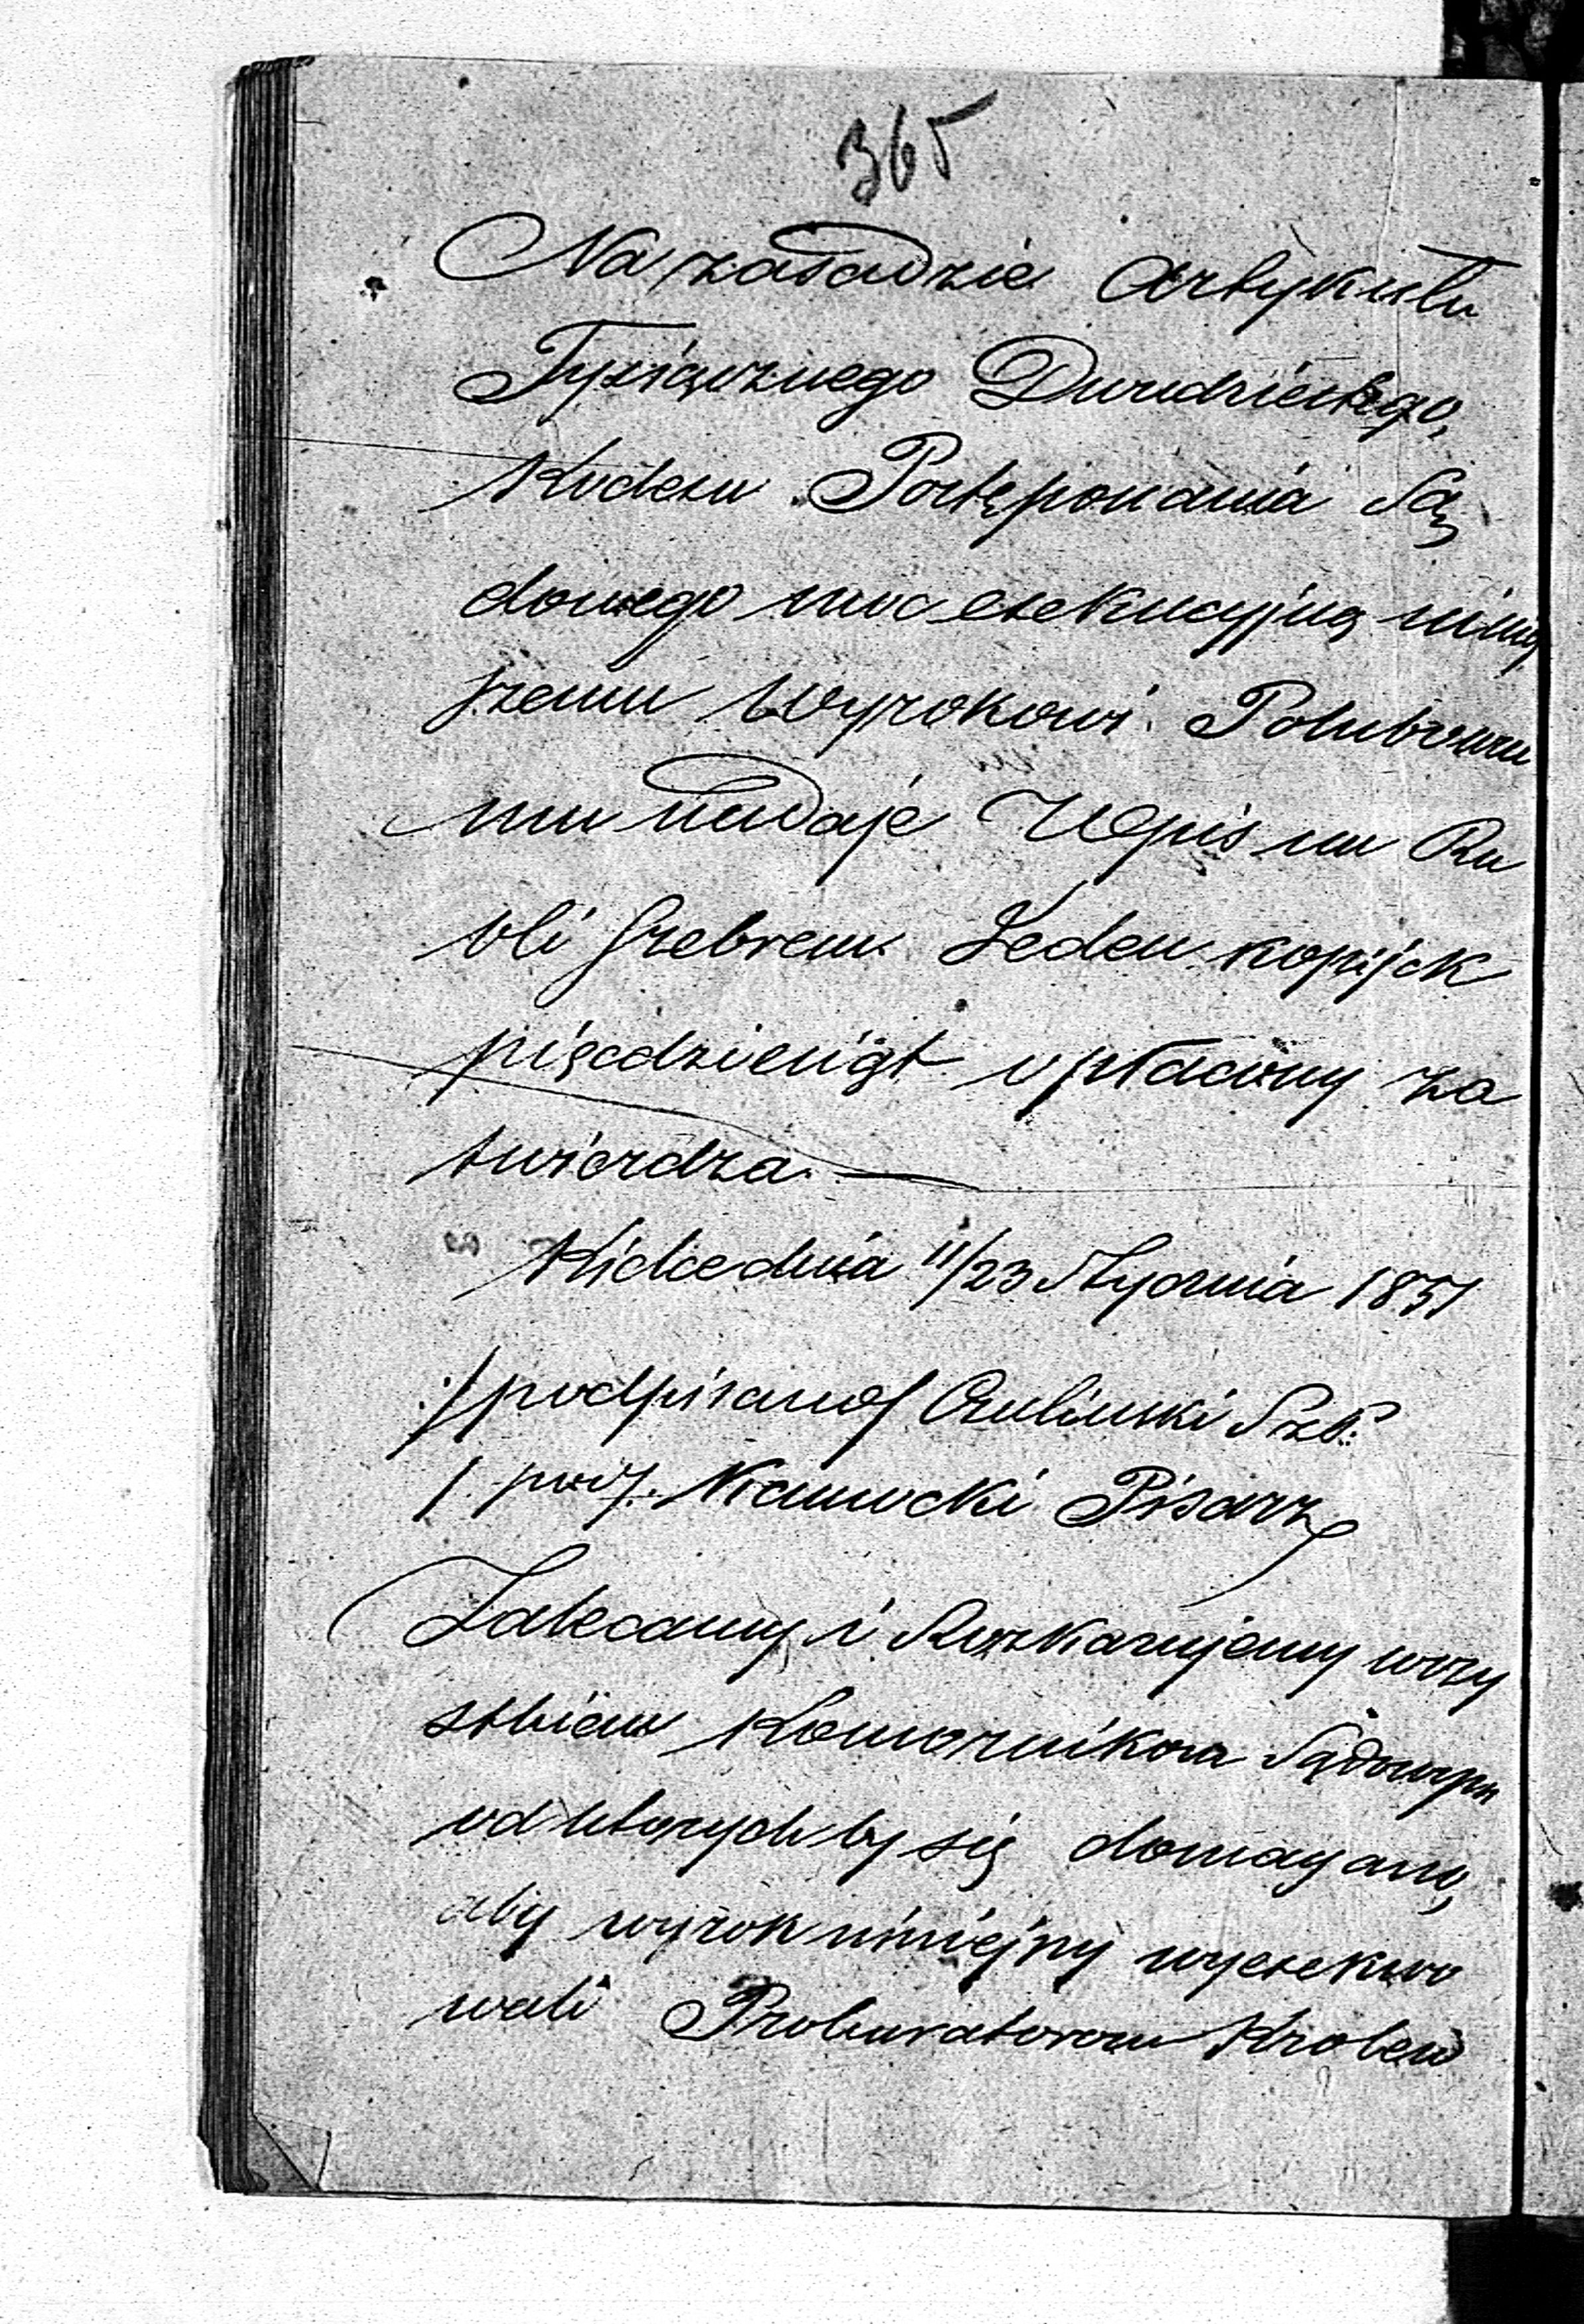 365
Na zasadzie Artykułu
Tysiącznego Dwudziestego,
Kodexu Postępowania Są
dowego moc exekucyjną niniej
szemu Wyrokowi Polubowne
mu nadaje Wpis na Ru
bli Srebrem Jeden kopijek
pięcdziesiąt opłacony za
twierdza. —
Kielce dnia 11/23 Stycznia 1851
:/podpisano/
/. podp. Pisarz
Zalecamy i Rozkazujemy wszy
stkim Komornikom Sądowym
od ktorych by się domagano,
aby wyrok niniejszy wyexekwo
wali Prokuratorom Krolew